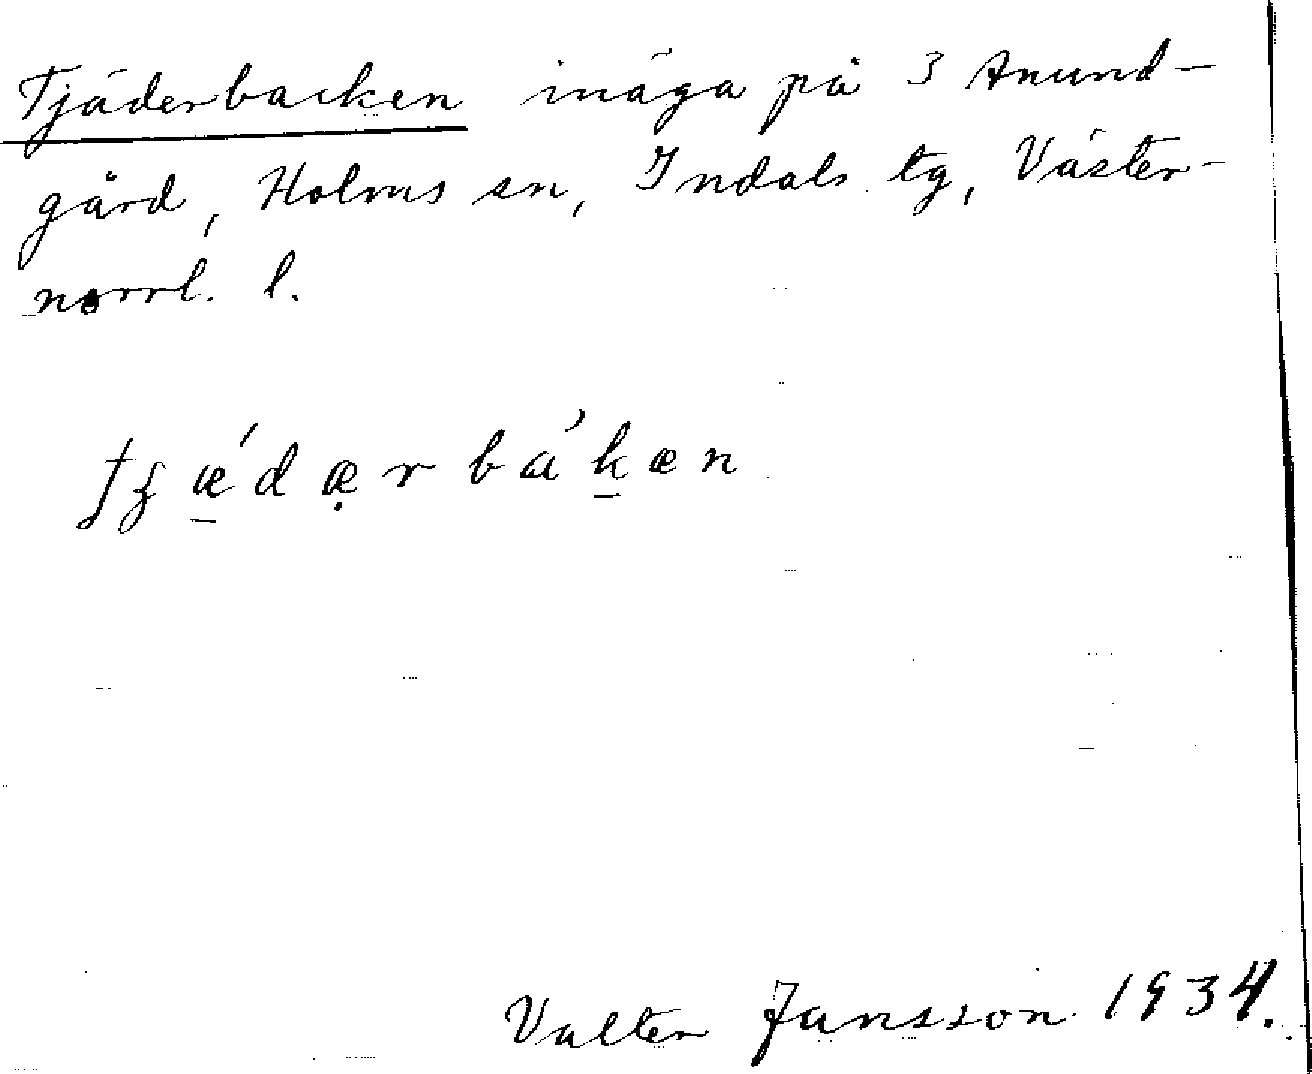 Tjäderbacken inäga på 3 Anund-
gård, Holms sn, Indals tg, Väster-
norrl. l.
Valter Jansson 1934.